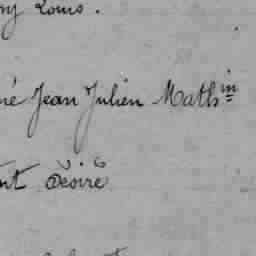 ny Louis.
né Jean Julien Math^in
nt Désiré